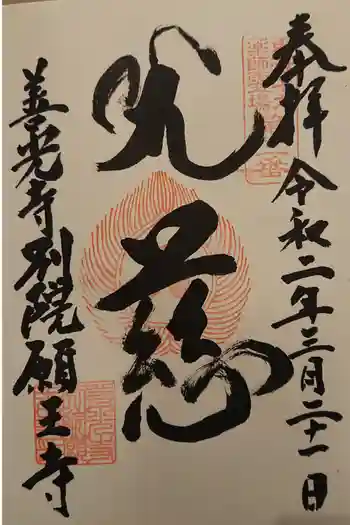 奉拝 令和二年三月二十一日
光慈
善光寺別院願王寺